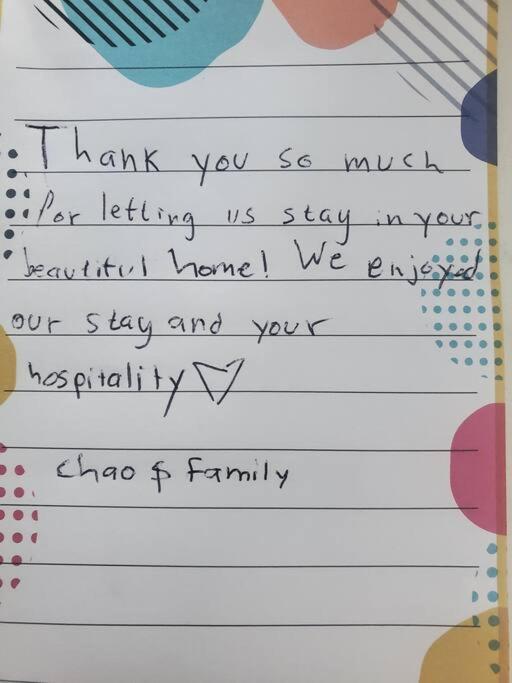 Thank you so much
for letting us stay in your
beautiful home! We enjoyed
our stay and your
hospitality♡
Chao & Family